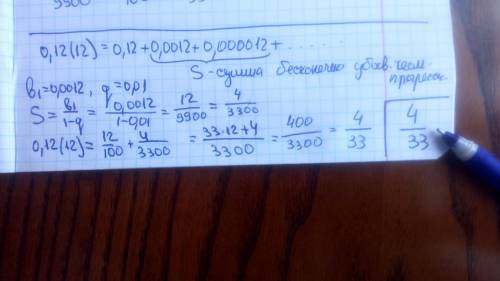 0,12(12) = 0,12 + 0,0012 + 0,000012 + ......
S - сумма бесконечно убыв. геом. прогрессии.
b₁ = 0,0012, q = 0,01
S = b₁/(1-q) = 0,0012/(1-0,01) = 12/9900 = 4/3300
0,12(12) = 12/100 + 4/3300 = (33·12+4)/3300 = 400/3300 = 4/33
4/33